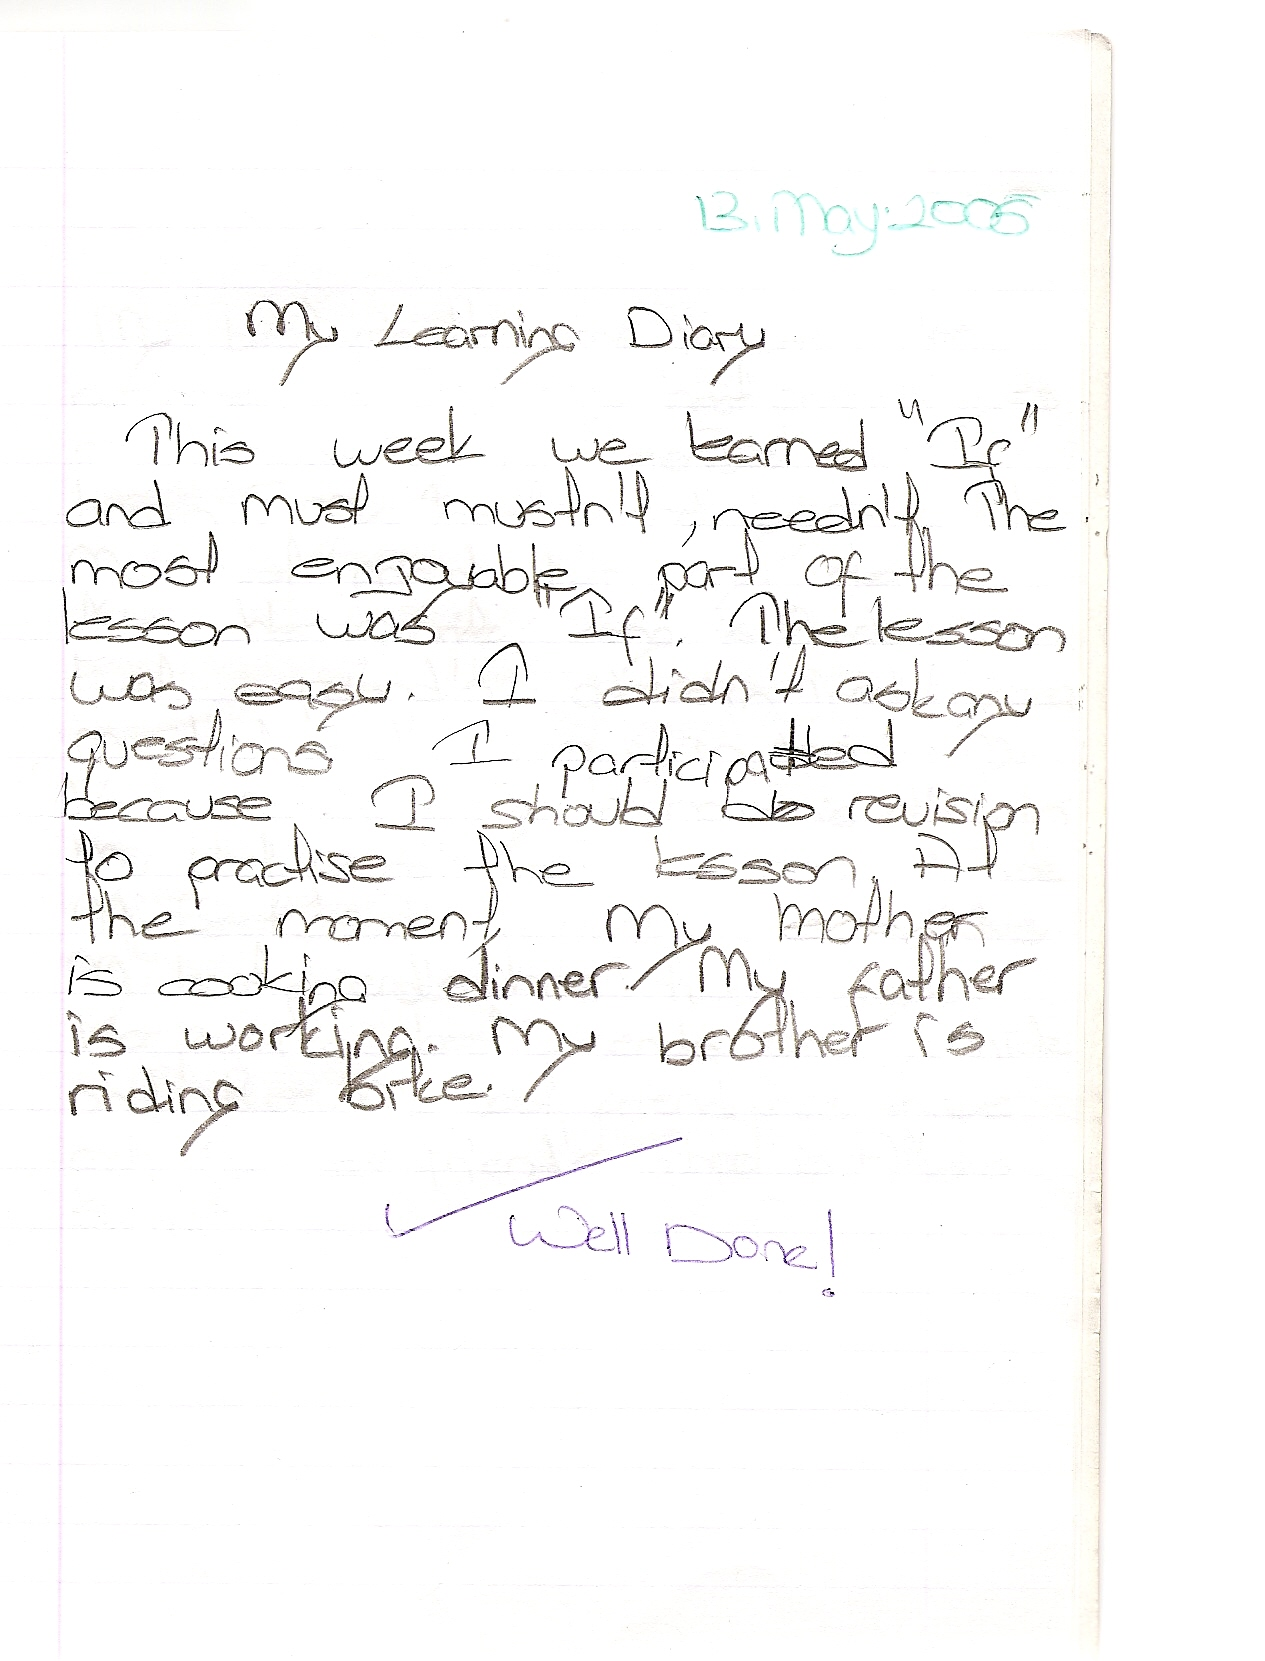 13.May.2005
My Learning Diary
This week we learned "If"
and must mustn't, needn't. The
most enjoyable part of the
lesson was "If". The lesson
was easy. I didn't ask any
questions I participated
because I should do revision
to practise the lesson. At
the moment, My mother
is cooking dinner. My father
is working. My brother is
riding bike.
Well Done!